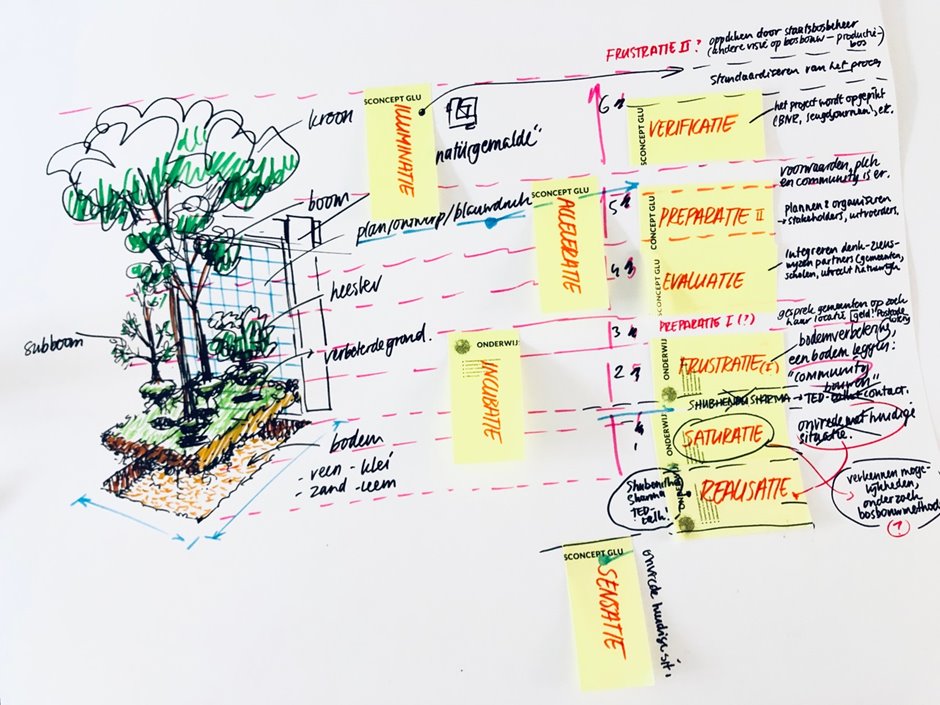 FRUSTRATIE II?
oppikken door staatsbosbeheer
(andere visie op bosbouw - productie-
bos)
Standaardizeren van het proces
SCONCEPT GLU
ILLUMINATIE
"natürgemalde"
kroon
boom
plan/ontwerp/blauwdruk
heester
subboom
verbeterde grond.
bodem
- veen - klei
- zand - leem
6
VERIFICATIE
het project wordt opgepikt
(BNR, jeugdjournaal, etc.
SCONCEPT GLU
ACCELERATIE
5
CONCEPT GLU
PREPARATIE II
voorwaarden, plek
en community is er.
plannen & organizeren
→ stakeholders, uitvoerders.
4
CONCEPT GLU
EVALUATIE
Integreren denk-ziens-
wijzen partners (gemeenten,
scholen, utrecht natuurlijk
3
PREPARATIE I (?)
gesprek gemeenten op zoek
naar locatie
geld! Postcode
ONDERWIJ
INCUBATIE
2
ONDERWIJ
FRUSTRATIE (I)
bodemverbetering,
een bodem leggen:
"community
bouwen"
SHUBHENDU SHARMA → TED-talk contact.
1
ONDERWIJ
SATURATIE
onvrede met huidige
situatie.
Shubendhu
Sharma
TED-
talk!
REALISATIE
verkennen moge-
lijkheden,
onderzoek
bosbouwmethode
?
SCONCEPT GLU
SENSATIE
onvrede huidige sit.